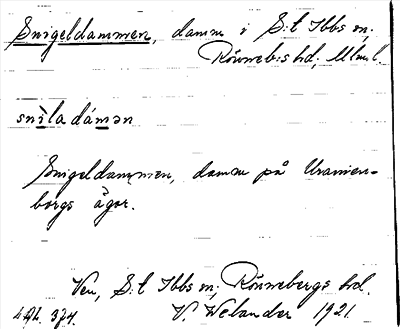 Snigeldammen, damm i S:t Ibbs sn;
Rönneb:s hd; Mlm.l.
snìladámən
Snigeldammen, damm på Uranien-
borgs ägor.
Ven, S:t Ibbs sn; Rönnebergs hd.
V. Welander 1921